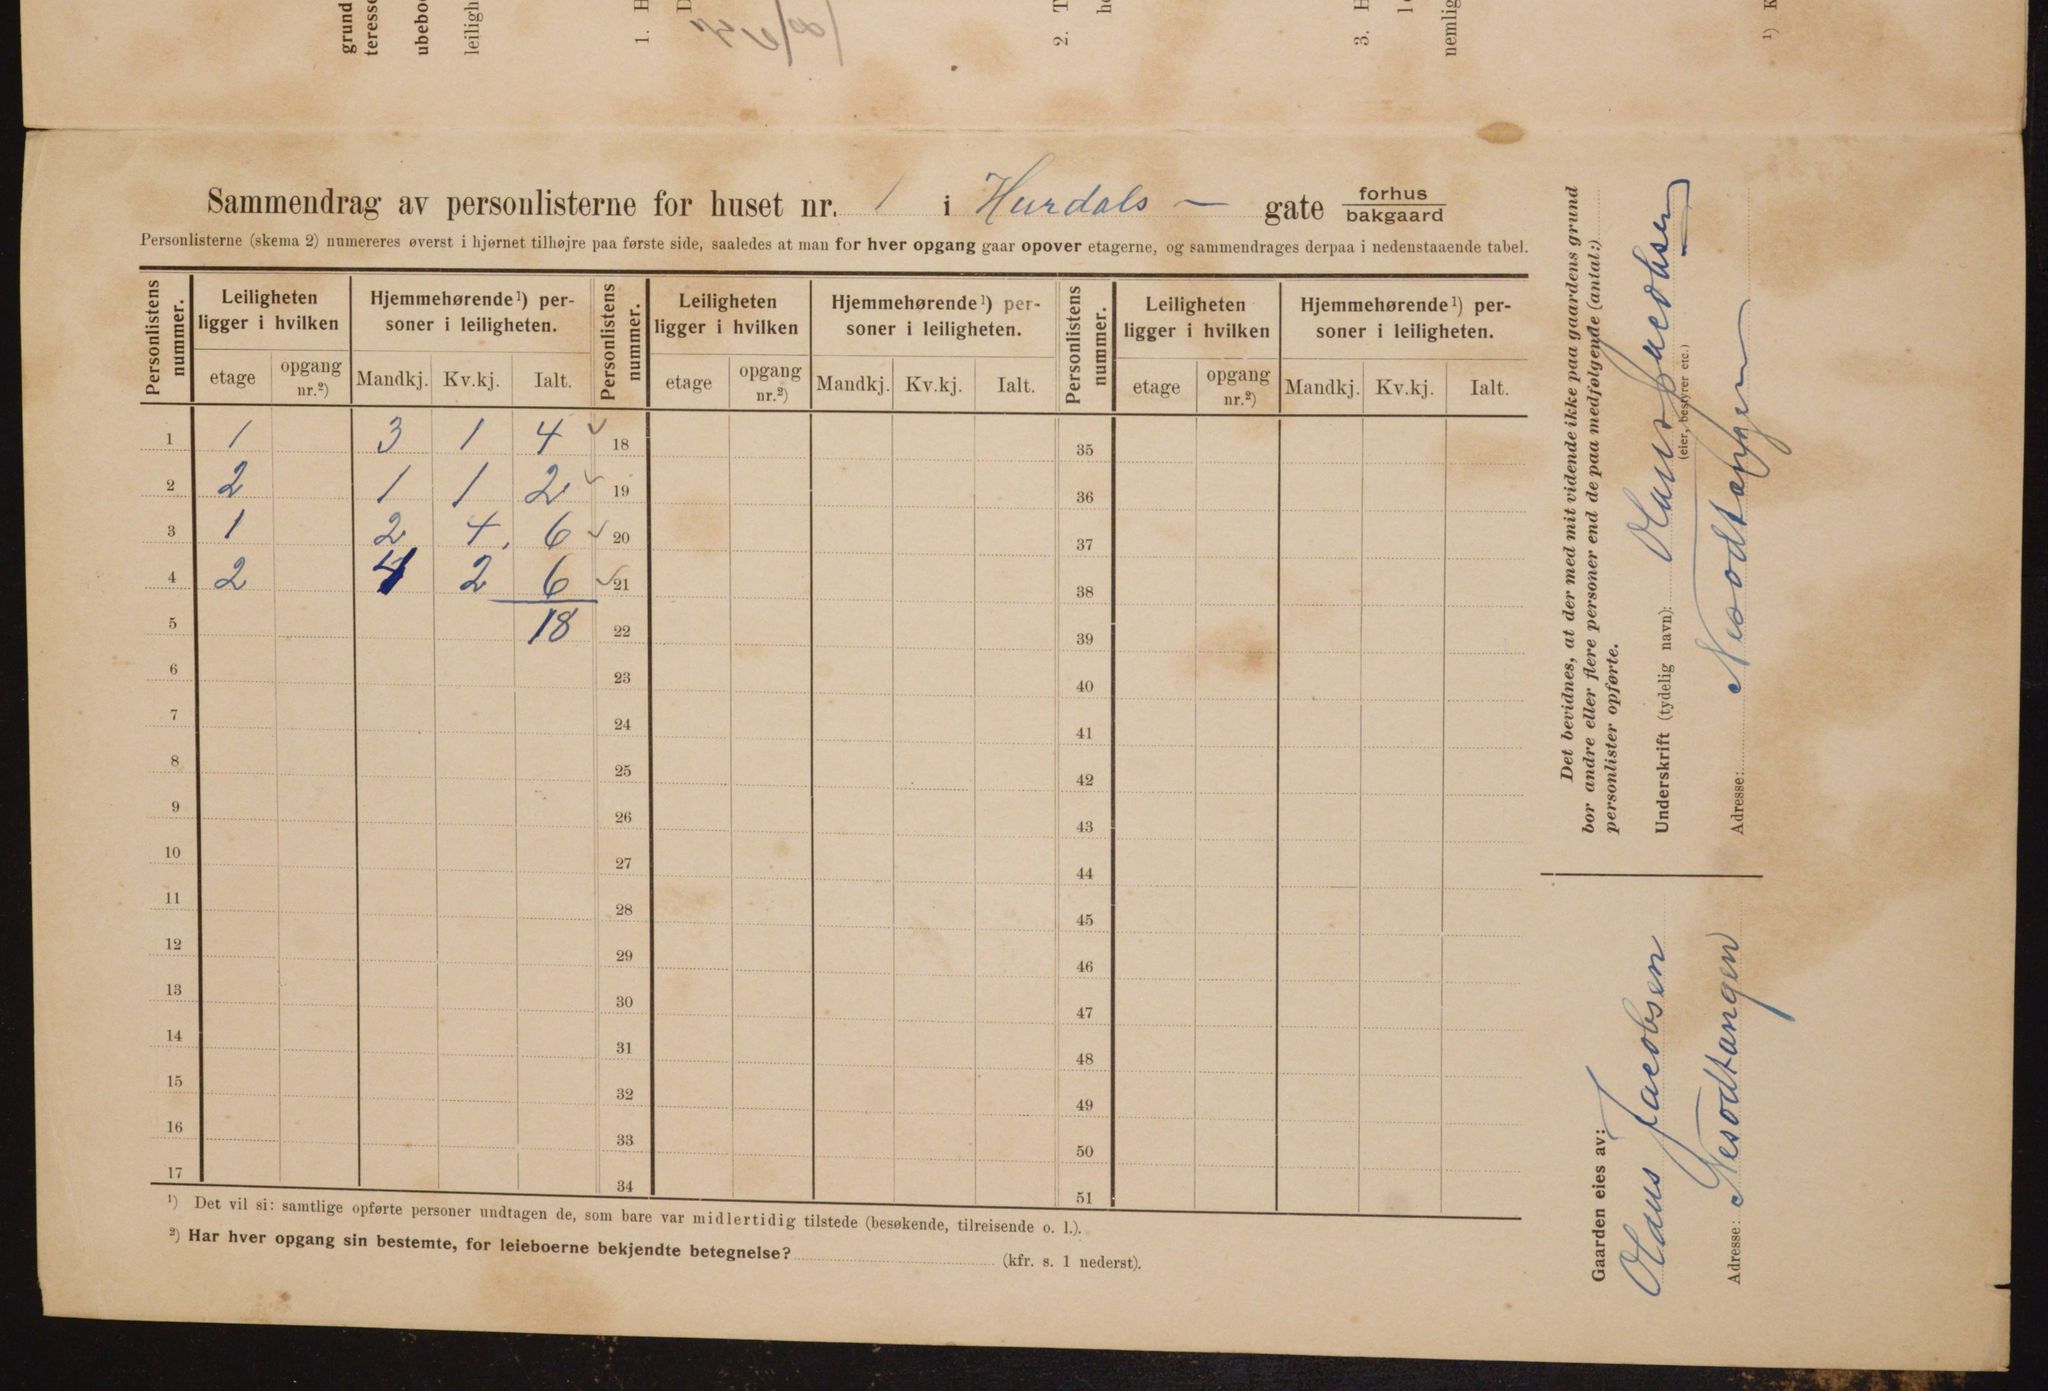 grund
teresse
ubeboe
leiligh
1. H
D
2. T
he
3. H
l
nemlig
¹) K
Sammendrag av personlisterne for huset nr. 1 i Hurdals — gate forhus
bakgaard
Personlisterne (skema 2) numereres øverst i hjørnet tilhøjre paa første side, saaledes at man for hver opgang gaar opover etagerne, og sammendrages derpaa i nedenstaaende tabel.
Personlistens nummer. Leiligheten ligger i hvilken Hjemmehørende¹) personer i leiligheten. Personlistens nummer. Leiligheten ligger i hvilken Hjemmehørende¹) personer i leiligheten. Personlistens nummer. Leiligheten ligger i hvilken Hjemmehørende¹) personer i leiligheten.
etage opgang nr.²) Mandkj. Kv.kj. Ialt. etage opgang nr.²) Mandkj. Kv.kj. Ialt. etage opgang nr.²) Mandkj. Kv.kj. Ialt.
1 1 3 1 4 ✓ 18 35
2 2 1 1 2 ✓ 19 36
3 1 2 4 6 ✓ 20 37
4 2 4 2 6 ✓ 21 38
5 18 22 39
6 23 40
7 24 41
8 25 42
9 26 43
10 27 44
11 28 45
12 29 46
13 30 47
14 31 48
15 32 49
16 33 50
17 34 51
¹) Det vil si: samtlige opførte personer undtagen de, som bare var midlertidig tilstede (besøkende, tilreisende o. l.).
²) Har hver opgang sin bestemte, for leieboerne bekjendte betegnelse? (kfr. s. 1 nederst).
Det bevidnes, at der med mit vidende ikke paa gaardens grund
bor andre eller flere personer end de paa medfølgende (antal:)
personlister opførte.
Underskrift (tydelig navn): Olaus Jacobsen
(eier, bestyrer etc.)
Adresse: Nesodtangen
Gaarden eies av:
Olaus Jacobsen
Adresse: Nesodtangen